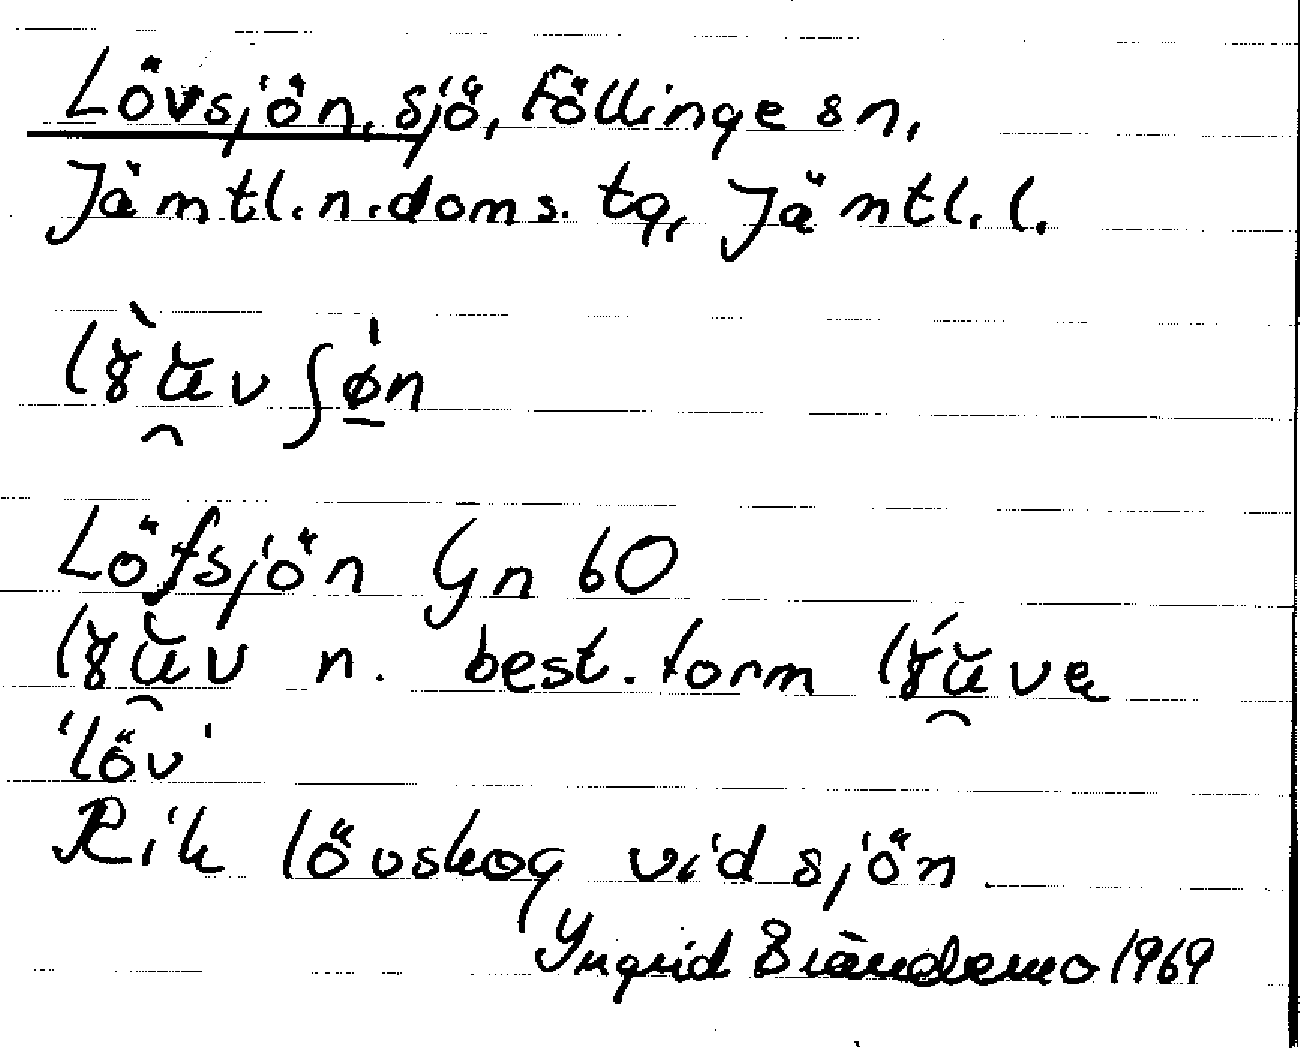 Lövsjön, sjö, Föllinge sn,
Jämtl.n.doms. tg, Jämtl. l.
Löfsjön Gn 60
n. best. form
'löv'
Rik lövskog vid sjön
Ingrid Brändemo 1969